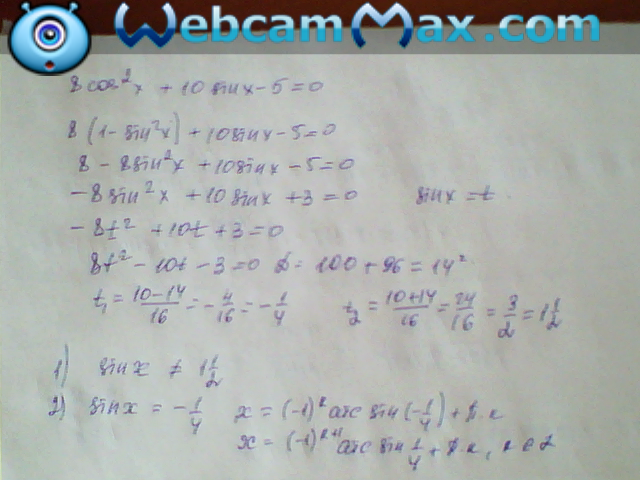 WebcamMax.com
8 cos²x + 10 sinx - 5 = 0
8 (1 - sin²x) + 10 sinx - 5 = 0
8 - 8 sin²x + 10 sinx - 5 = 0
-8 sin²x + 10 sinx + 3 = 0 sinx = t.
-8t² + 10t + 3 = 0
8t² - 10t - 3 = 0 D = 100 + 96 = 14²
t₁ = (10-14)/16 = -4/16 = -1/4 t₂ = (10+14)/16 = 24/16 = 3/2 = 1 1/2
1) sinx ≠ 1 1/2
2) sinx = -1/4 x = (-1)ᵏ arc sin (-1/4) + πk
x = (-1)ᵏ⁺¹ arc sin 1/4 + πk, k ∈ Z